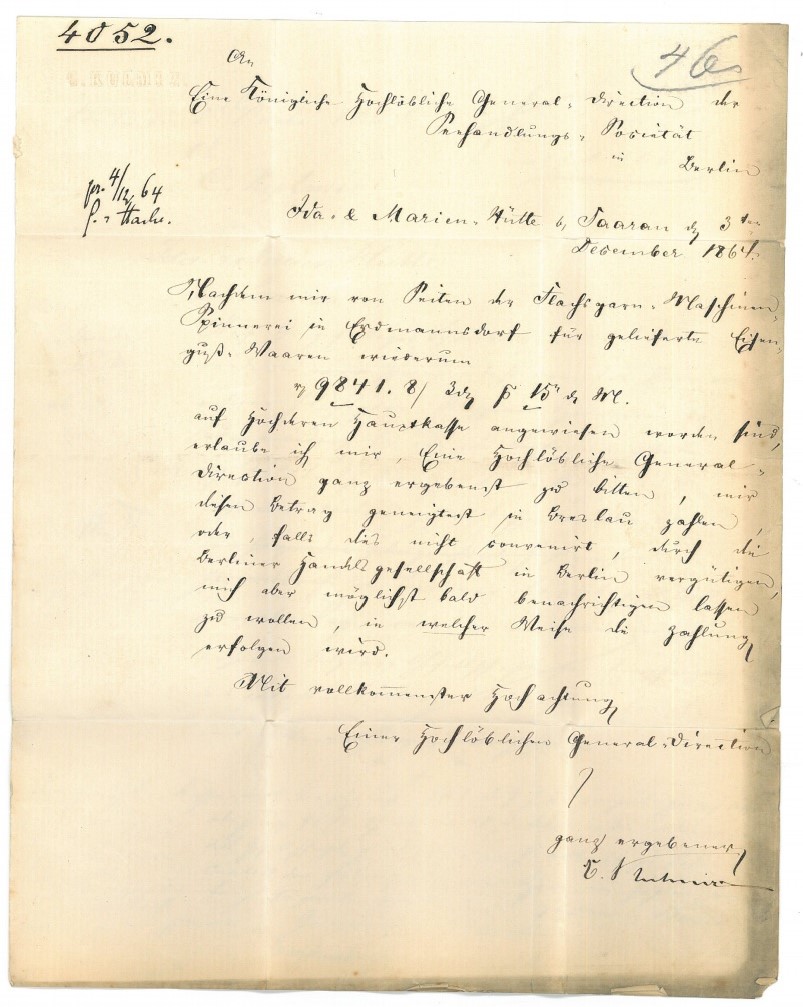 4052.
46
An
Eine Königliche Hochlöbliche General-Direction der
Seehandlungs-Societät
in Berlin
pr. 4/12 64
Ida- & Marien-Hütte b/ Saarau d. 3ten
December 1864.
Nachdem mir von Seiten der Flachsgarn-Maschinen-
Spinnerei in Erdmannsdorf für gelieferte Eisen-
guß-Waaren wiederum
9841. 8/ 3 15 d. M.
auf Hochderen Hauptkasse angewiesen worden sind,
erlaube ich mir, Eine Hochlöbliche General-
Direction ganz ergebenst zu bitten, mir
diesen Betrag geneigtest in Breslau zahlen,
oder, falls dies nicht convenirt, durch die
Berliner Handelsgesellschaft in Berlin vergütigen,
mich aber möglichst bald benachrichtigen lassen
zu wollen, in welcher Weise die Zahlung
erfolgen wird.
Mit vollkommenster Hochachtung
Einer Hochlöblichen General-Direction
ganz ergebener